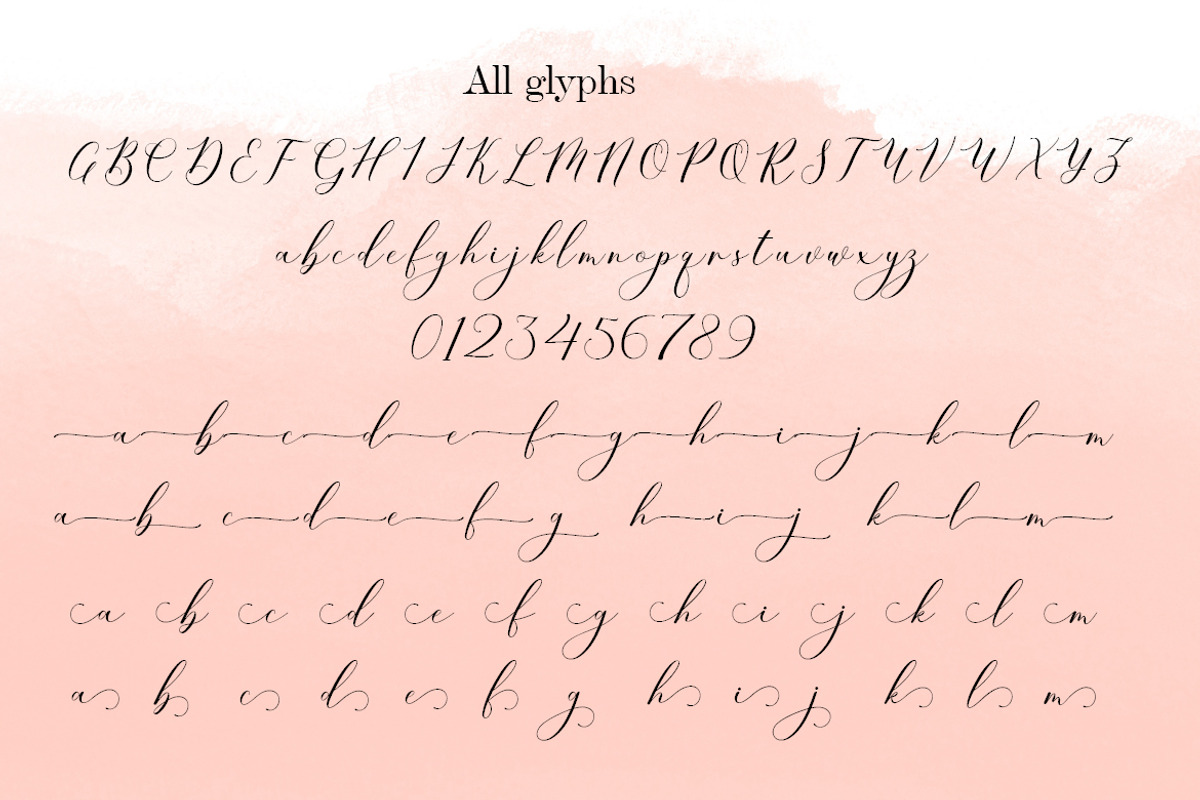 All glyphs
A B C D E F G H I J K L M N O P Q R S T U V W X Y Z
a b c d e f g h i j k l m n o p q r s t u v w x y z
0 1 2 3 4 5 6 7 8 9
a b c d e f g h i j k l m
a b c d e f g h i j k l m
a b c d e f g h i j k l m
a b c d e f g h i j k l m